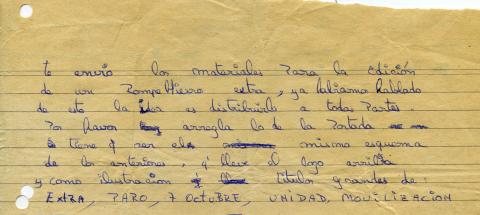 te envio los materiales para la edición
de un Rompe Hierro extra, ya habíamos hablado
de esto la idea es distribuirla a todas Partes.
Por favor arregla lo de la Portada
tiene q ser el mismo esquema
de los anteriores, q' lleve el logo arriba
y como ilustracion titulos grandes de:
EXTRA, PARO, 7 OCTUBRE, UNIDAD, MOVILIZACION